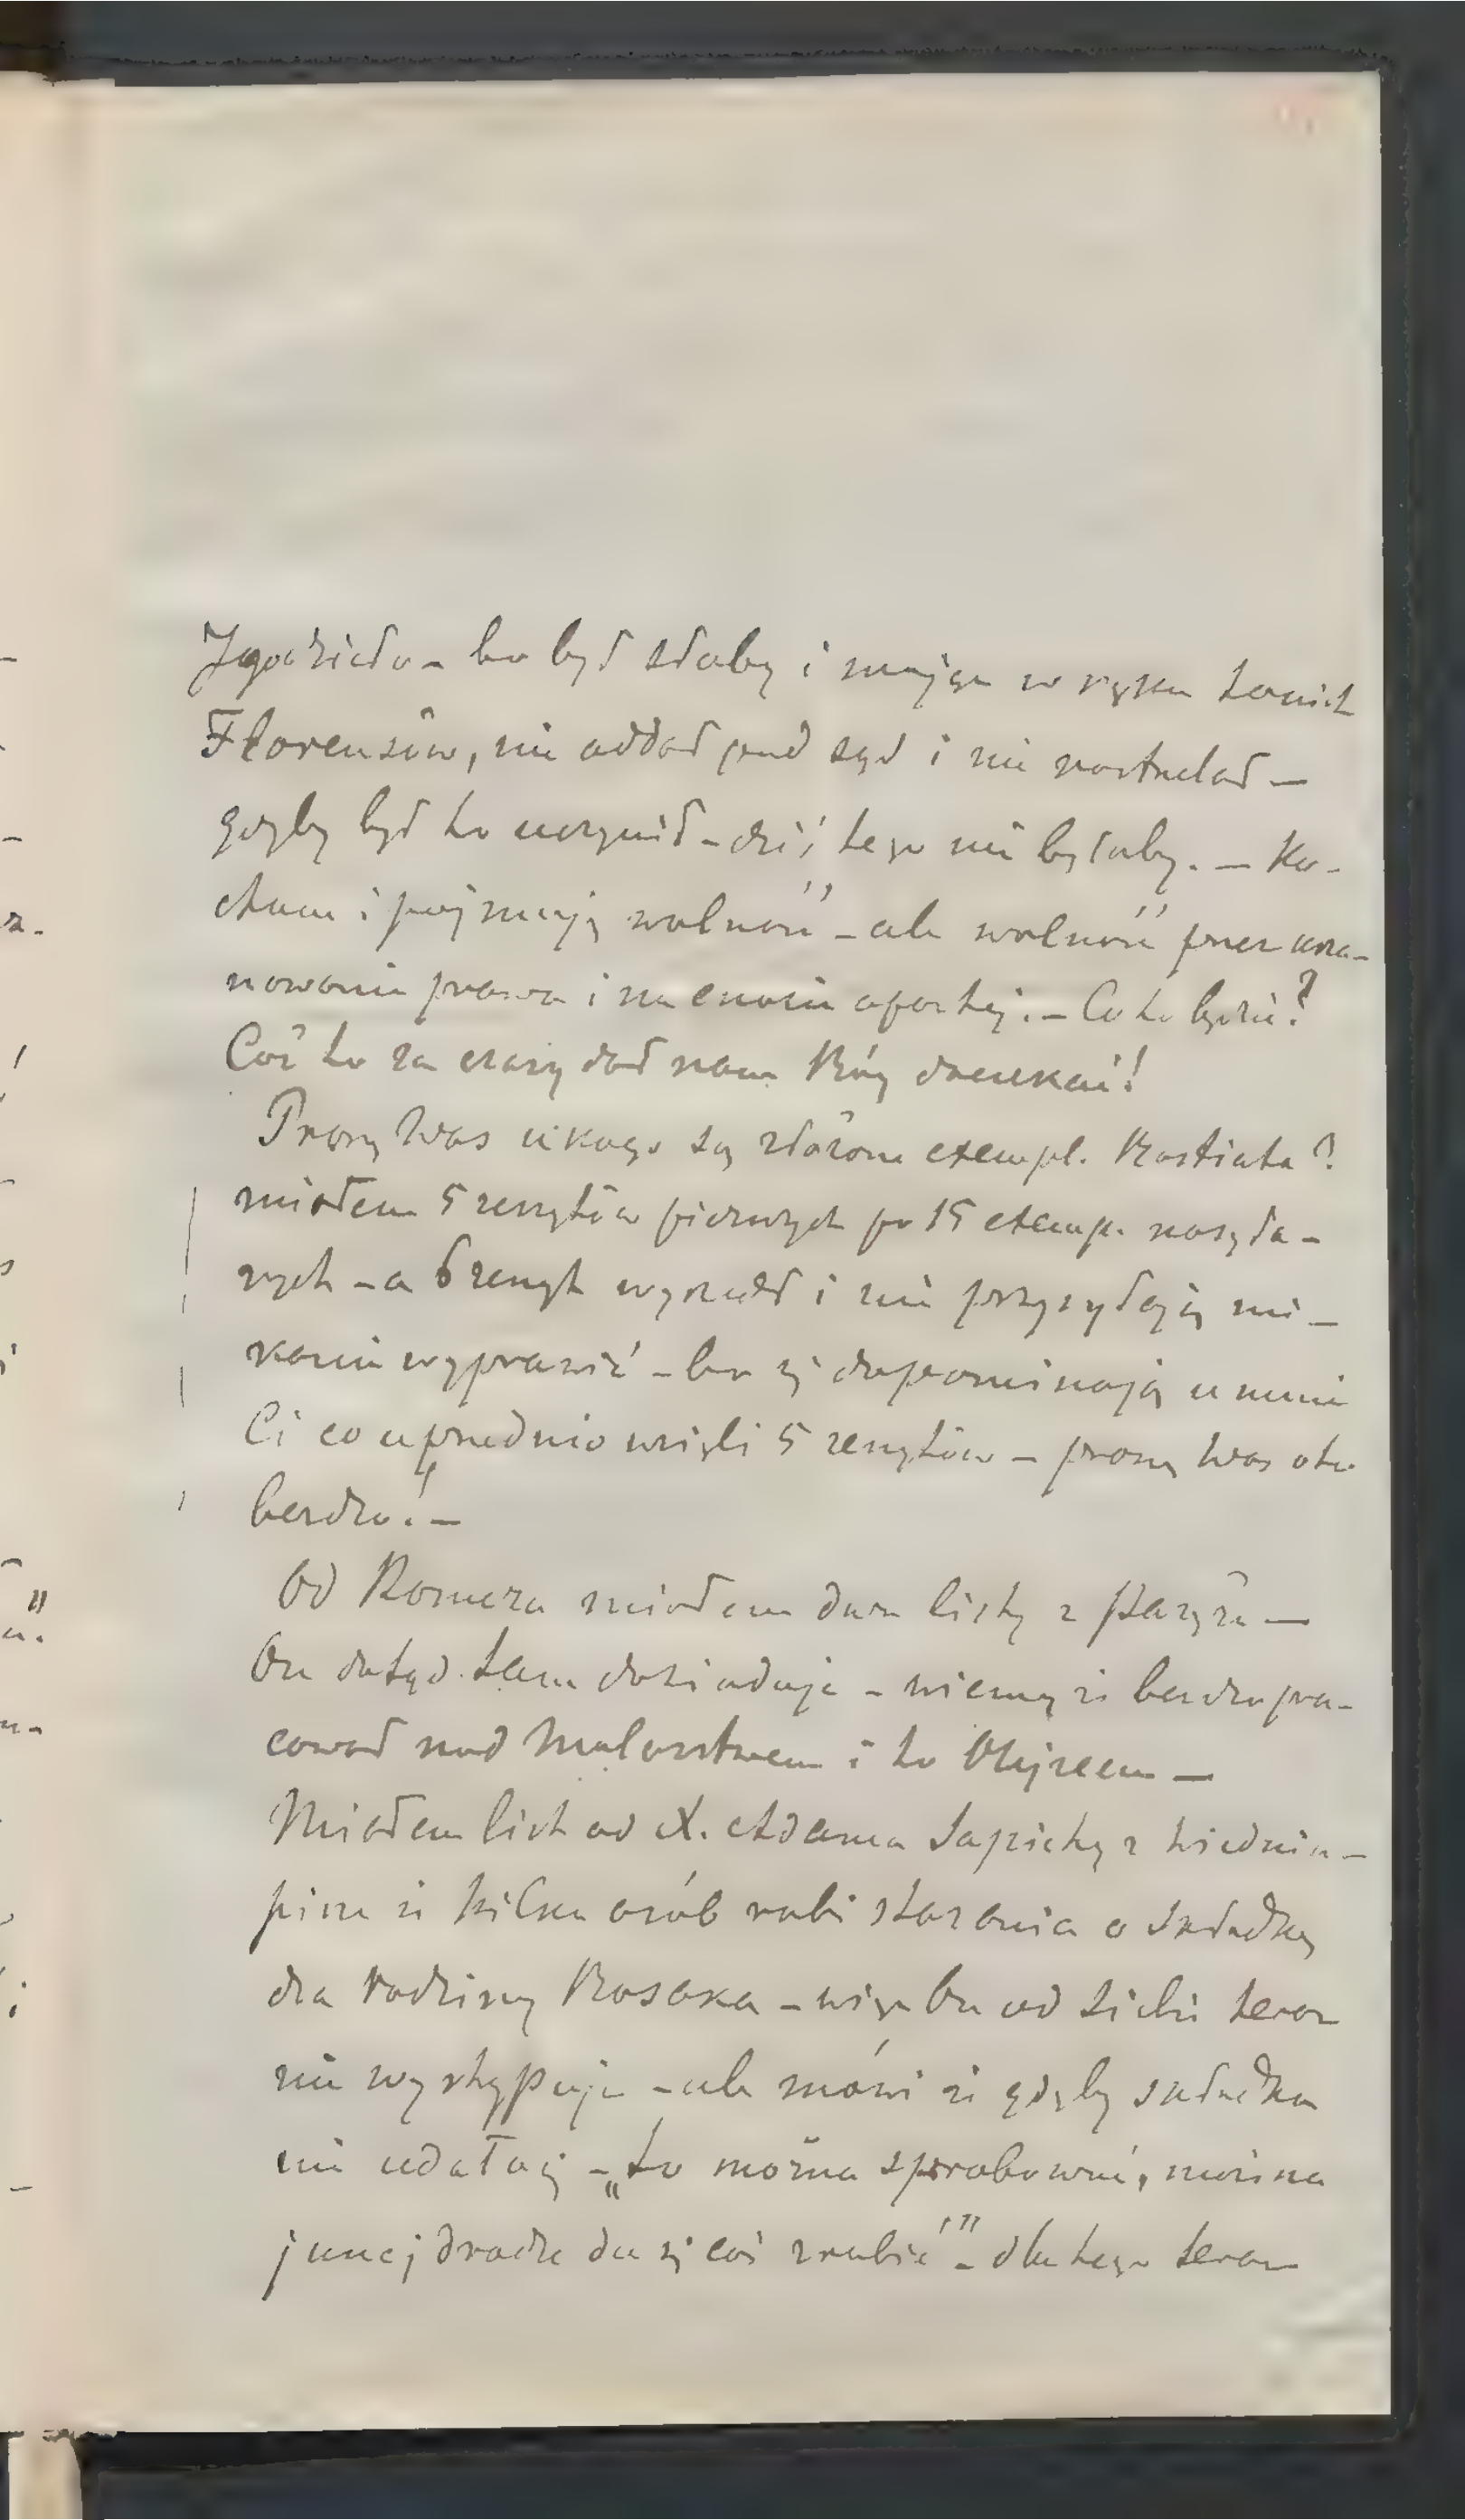 Zgodziło – bo był słaby i mając w ręku takich
Florensów, nie oddał pod sąd i nie rostrzelał –
gdyby był to uczynił – dziś tego nie byłoby. – Ko-
cham i pojmuję wolność – ale wolność przez usza-
nowanie prawa i na cnocie opartej. – Co to będzie?
Cóż to za czasy dał nam Bóg doczekać!
Proszę Was u kogo są złożone exempl. Bastiata?
miałem 5 zeszytów pierwszych po 15 exemp. nasyła-
nych – a 6 zeszyt wyszedł i nie przysyłają mi –
każcie wyprawić – bo się dopominają u mnie
Ci co uprzednio wzięli 5 zeszytów – proszę Was oto
bardzo! –
Od Romera miałem dwa listy z Paryża –
On dotąd tam dosiaduje – wiemy że bardzo pra-
cował nad Malarstwem i to Olejnem –
Miałem list od X. Adama Sapiehy z Wiednia –
pisze że kilka osób robi starania o składkę
dla rodziny Bosaka – więc On od siebie teraz
nie występuje – ale mówi że gdyby składka
nie udała się – „to można spróbować, może na
innej drodze da się coś zrobić” – dla tego teraz